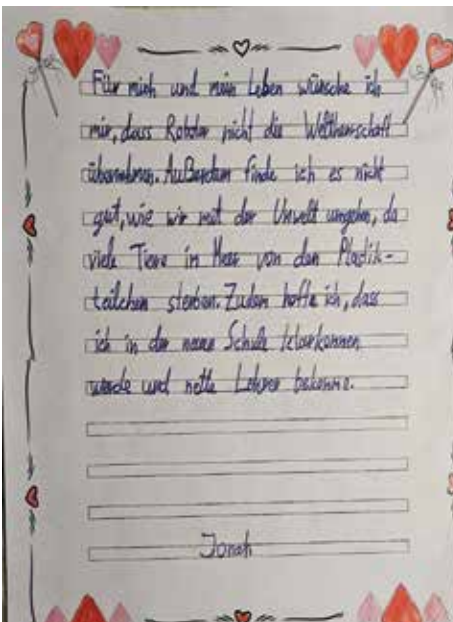 Für mich und mein Leben wünsche ich
mir, dass Roboter nicht die Weltherrschaft
übernehmen. Außerdem finde ich es nicht
gut, wie wir mit der Umwelt umgehen, da
viele Tiere im Meer von den Plastik-
teilchen sterben. Zudem hoffe ich, dass
ich in der neuen Schule klarkommen
werde und nette Lehrer bekomme.
Jonah